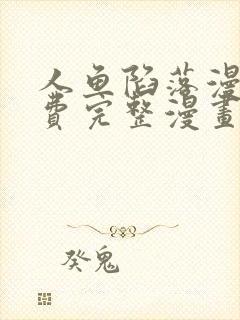 人鱼陷落漫
费完整漫畫
癸鬼